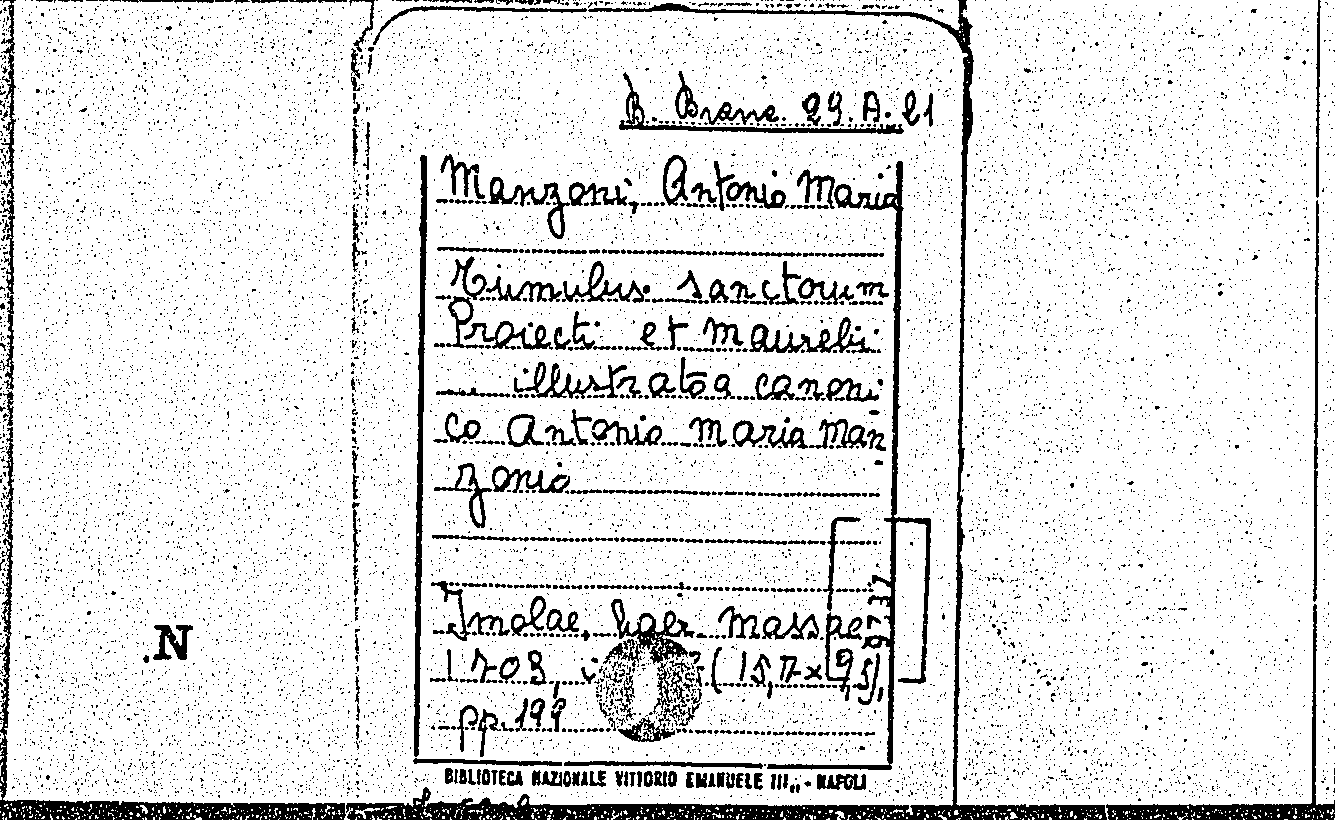 B. Branc. 29. A. 21
Manzoni, Antonio Maria
Tumulus sanctorum
Proiecti et Maureli
... illustrat a canoni-
co Antonio Maria Man-
zonio
Imolae, haer. Massae
1703, (15,7x9,5),
pp. 199
9737
.N
BIBLIOTECA NAZIONALE VITTORIO EMANUELE III,, - NAPOLI